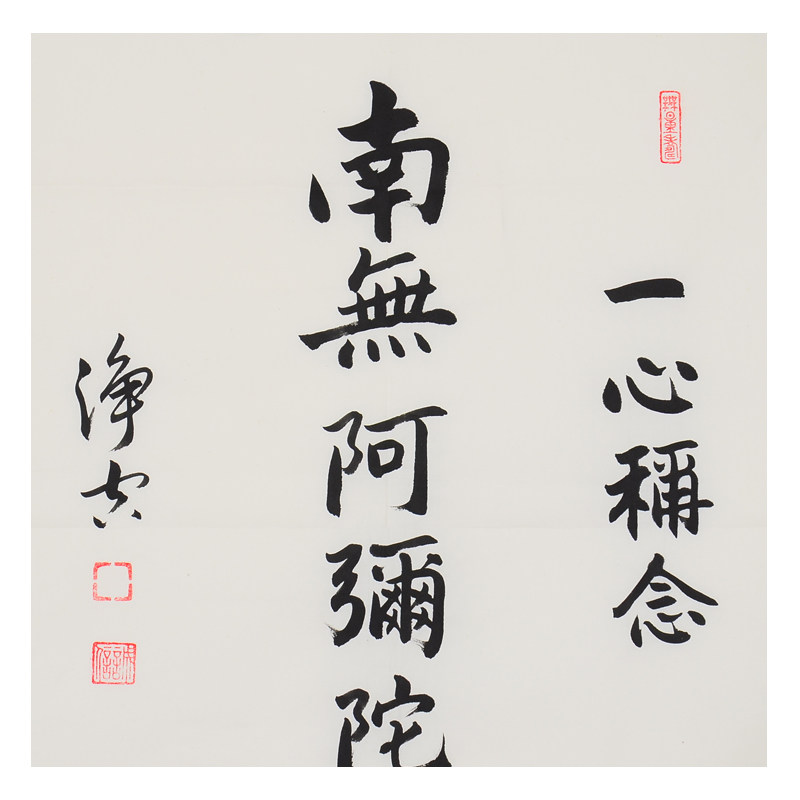 一心稱念
南無阿彌陀
淨空